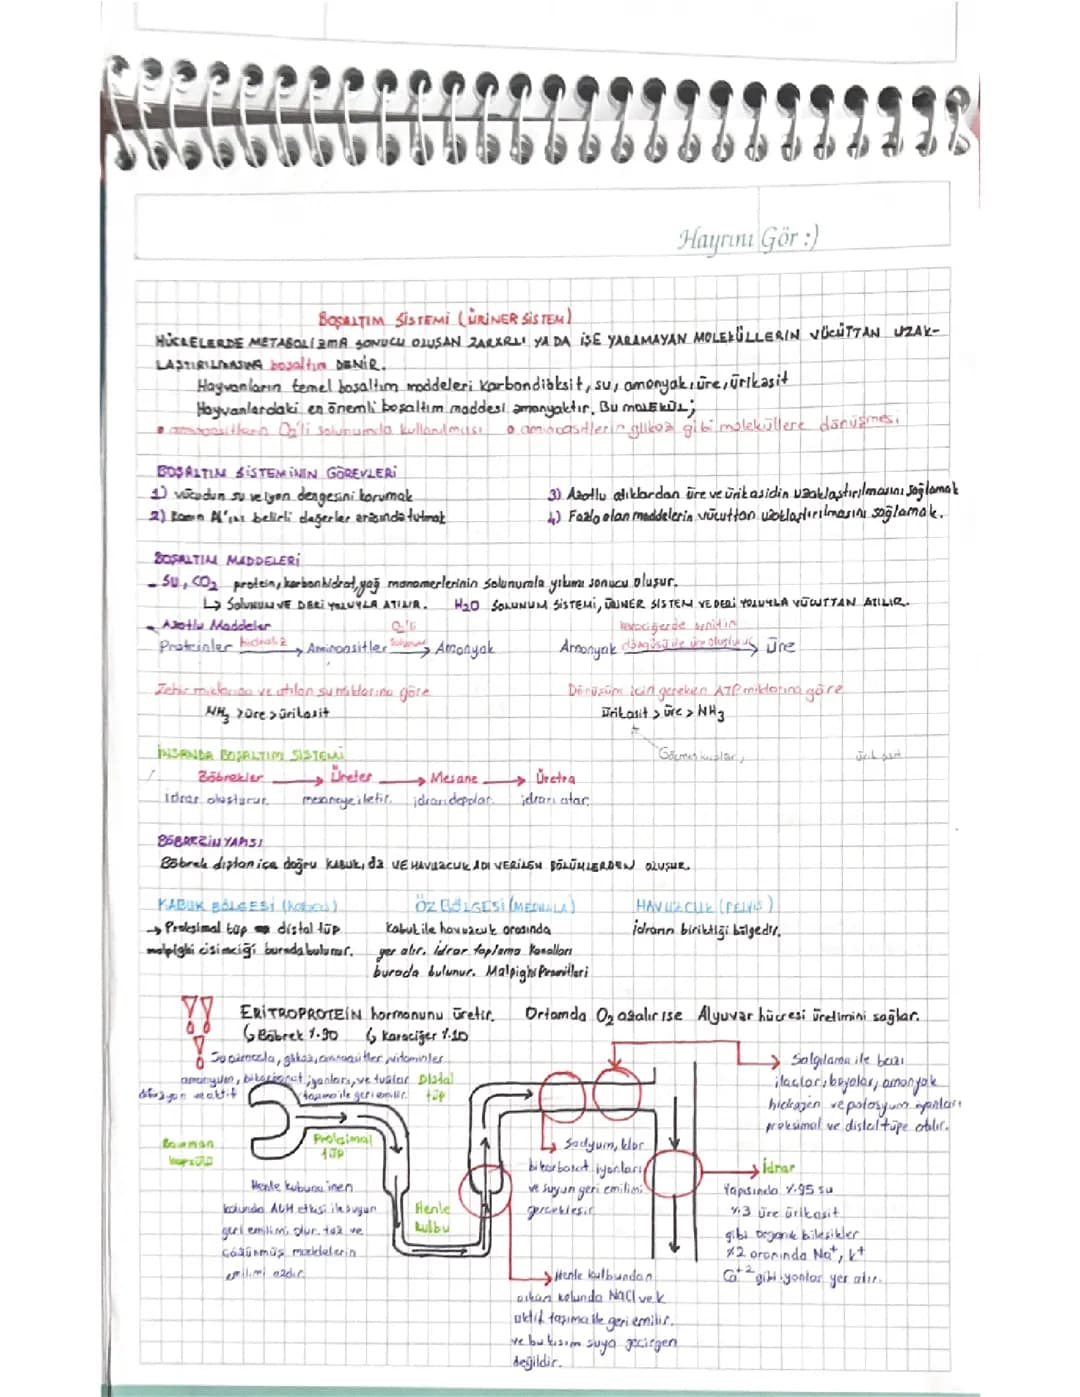 Hayrını Gör :)
BOŞALTIM SİSTEMİ (ÜRİNER SİSTEM)
HÜCRELERDE METABOLİZMA SONUCU OLUŞAN ZARARLI YA DA İŞE YARAMAYAN MOLEKÜLLERİN VÜCUTTAN UZAK-
LAŞTIRILMASINA boşaltım DENİR.
Hayvanların temel boşaltım maddeleri karbondioksit, su, amonyak, üre, ürikasit
Hayvanlardaki en önemli boşaltım maddesi amonyaktır. Bu MOLEKÜL;
• aminoasitlerin O₂'li solunumda kullanılması • aminoasitlerin glikoz gibi moleküllere dönüşmesi
BOŞALTIM SİSTEMİNİN GÖREVLERİ
1) vücudun su ve iyon dengesini korumak
2) Kanın pH'ını belirli değerler arasında tutmak
3) Azotlu atıklardan üre ve ürikasidin uzaklaştırılmasını sağlamak
4) Fazla olan maddelerin vücuttan uzaklaştırılmasını sağlamak.
BOŞALTIM MADDELERİ
- SU, CO₂ protein, karbonhidrat, yağ monomerlerinin solunumla yıkımı sonucu oluşur.
↳ SOLUNUM VE DERİ YOLUYLA ATILIR. H₂O SOLUNUM SİSTEMİ, ÜRİNER SİSTEM VE DERİ YOLUYLA VÜCUTTAN ATILIR.
- Azotlu Maddeler
Proteinler hidroliz → Aminoasitler O₂'li Solunum → Amonyak
Amonyak karaciğerde ornitin döngüsü ile üre oluşur → Üre
Zehir miktarına ve atılan su miktarına göre
NH₃ > Üre > ürikasit
Dönüşüm için gereken ATP miktarına göre
Ürikasit > üre > NH₃
İNSANDA BOŞALTIM SİSTEMİ
Böbrekler → Üreter → Mesane → Üretra
idrar oluşturur. mesaneye iletir. idrarı depolar. idrarı atar.
BÖBREĞİN YAPISI
Böbrek dıştan içe doğru KABUK, öz VE HAVUZCUK ADI VERİLEN BÖLÜMLERDEN OLUŞUR.
KABUK BÖLGESİ (Kabuk)
→ Proksimal tüp distal tüp
malpighi cisimciği burada bulunur.
ÖZ BÖLGESİ (MEDULLA)
Kabuk ile havuzcuk arasında
yer alır. idrar toplama kanalları
burada bulunur. Malpighi Piramitleri
HAVUZCUK (PELVİS)
idrarın biriktiği bölgedir.
!! ERİTROPROTEİN hormonunu üretir. Ortamda O₂ azalır ise Alyuvar hücresi üretimini sağlar.
↳ Böbrek %90 ↳ Karaciğer %10
! glikoz, aminoasitler, vitaminler
amonyum, bikarbonat iyonları, ve tuzlar
difüzyon ve aktif taşıma ile geri emilir.
Distal
tüp
Bowman
kapsülü
Proksimal
tüp
Henle kulbuna inen
kolunda ADH etkisi ile suyun
geri emilimi olur. tuz ve
çözünmüş maddelerin
emilimi azdır.
Henle
kulbu
Sodyum, klor
bikarbonat iyonları
ve suyun geri emilimi
gerçekleşir
Henle kulbundan
çıkan kolunda NaCl ve k
aktif taşıma ile geri emilir.
ve bu kısım suya geçirgen
değildir.
Salgılama ile bazı
ilaçlar, boyalar, amonyak
hidrojen ve potasyum iyonları
proksimal ve distal tüpe atılır.
idrar
Yapısında %95 su
%3 üre ürikasit
gibi organik bileşikler
%2 oranında Na⁺, k⁺
Ca⁺² gibi iyonlar yer alır.